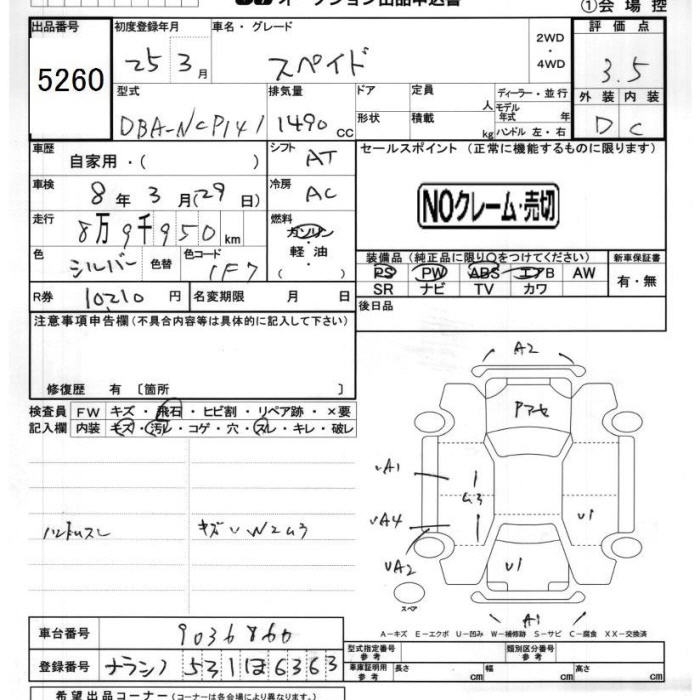 オークション出品申込書
①会 場 控
出品番号 初度登録年月 車名・グレード 評 価 点
5260
25 3月 スペイド
2WD
・
4WD
3.5
型式 排気量 ドア 定員 人 ディーラー・並行
外 装 内 装
DBA-NCP141 1490 CC
形状 積載 kg
モデル年式 年
ハンドル 左・右
D C
車歴 自家用・( )
シフト AT
セールスポイント (正常に機能するものに限ります)
車検 8年 3月(29日)
冷房 AC
NOクレーム・売切
走行 8万9千950km
燃料 ガソリン・軽油・( )
色 シルバー 色替 色コード 1F7
装備品 (純正品に限り○をつけてください) 新車保証書
PS PW ABS エアB AW
SR ナビ TV カワ
有・無
R券 10210円 名変期限 月 日
後日品
注意事項申告欄(不具合内容等は具体的に記入して下さい)
修復歴 有 〔箇所 〕
検査員 FW キズ・飛石・ヒビ割・リペア跡・×要
記入欄 内装 キズ・汚レ・コゲ・穴・スレ・キレ・破レ
ハンドルスレ キズUW2U3
A2
Pアセ
UA1
U3
UA4
U1
UA2
U1
スペア
A1
A-キズ E-エクボ U-凹み W-補修跡 S-サビ C-腐食 XX-交換済
車台番号 9036860
登録番号 ナラシノ 531 ほ 6363
型式指定番号 類別区分番号
車庫証明用参考 長さ cm 幅 cm 高さ cm
希望出品コーナー(コーナーは各会場により異なります。)